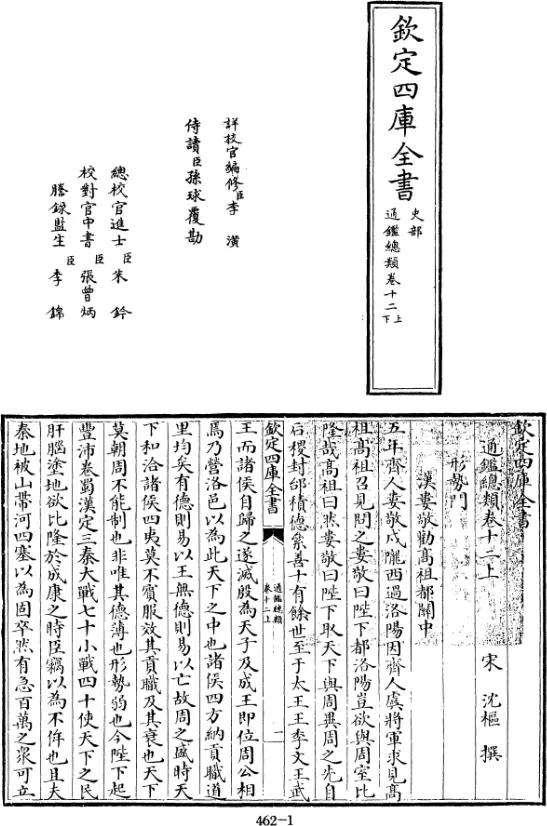 欽定四庫全書
史部
通鑑總類卷十二上下
詳校官編修臣李潢
侍讀臣孫球覆勘
總校官進士臣朱鈐
校對官中書臣張曾炳
謄録監生臣李錦
欽定四庫全書
通鑑總類卷十二上
宋 沈樞 撰
形勢門
漢婁敬勸高祖都關中
五年齊人婁敬戍隴西過洛陽因齊人虞將軍求見高
祖高祖召見問之婁敬曰陛下都洛陽豈欲與周室比
隆哉高祖曰然婁敬曰陛下取天下與周異周之先自
后稷封邰積德絫善十有餘世至于太王王季文王武
欽定四庫全書
通鑑總類
卷十二上
一
王而諸侯自歸之遂滅殷為天子及成王即位周公相
焉乃營洛邑以為此天下之中也諸侯四方納貢職道
里均矣有德則易以王無德則易以亡故周之盛時天
下和洽諸侯四夷莫不賓服效其貢職及其衰也天下
莫朝周不能制也非唯其德薄也形勢弱也今陛下起
豐沛卷蜀漢定三秦大戰七十小戰四十使天下之民
肝腦塗地欲比隆於成康之時臣竊以為不侔也且夫
秦地被山帶河四塞以為固卒然有急百萬之衆可立
462-1